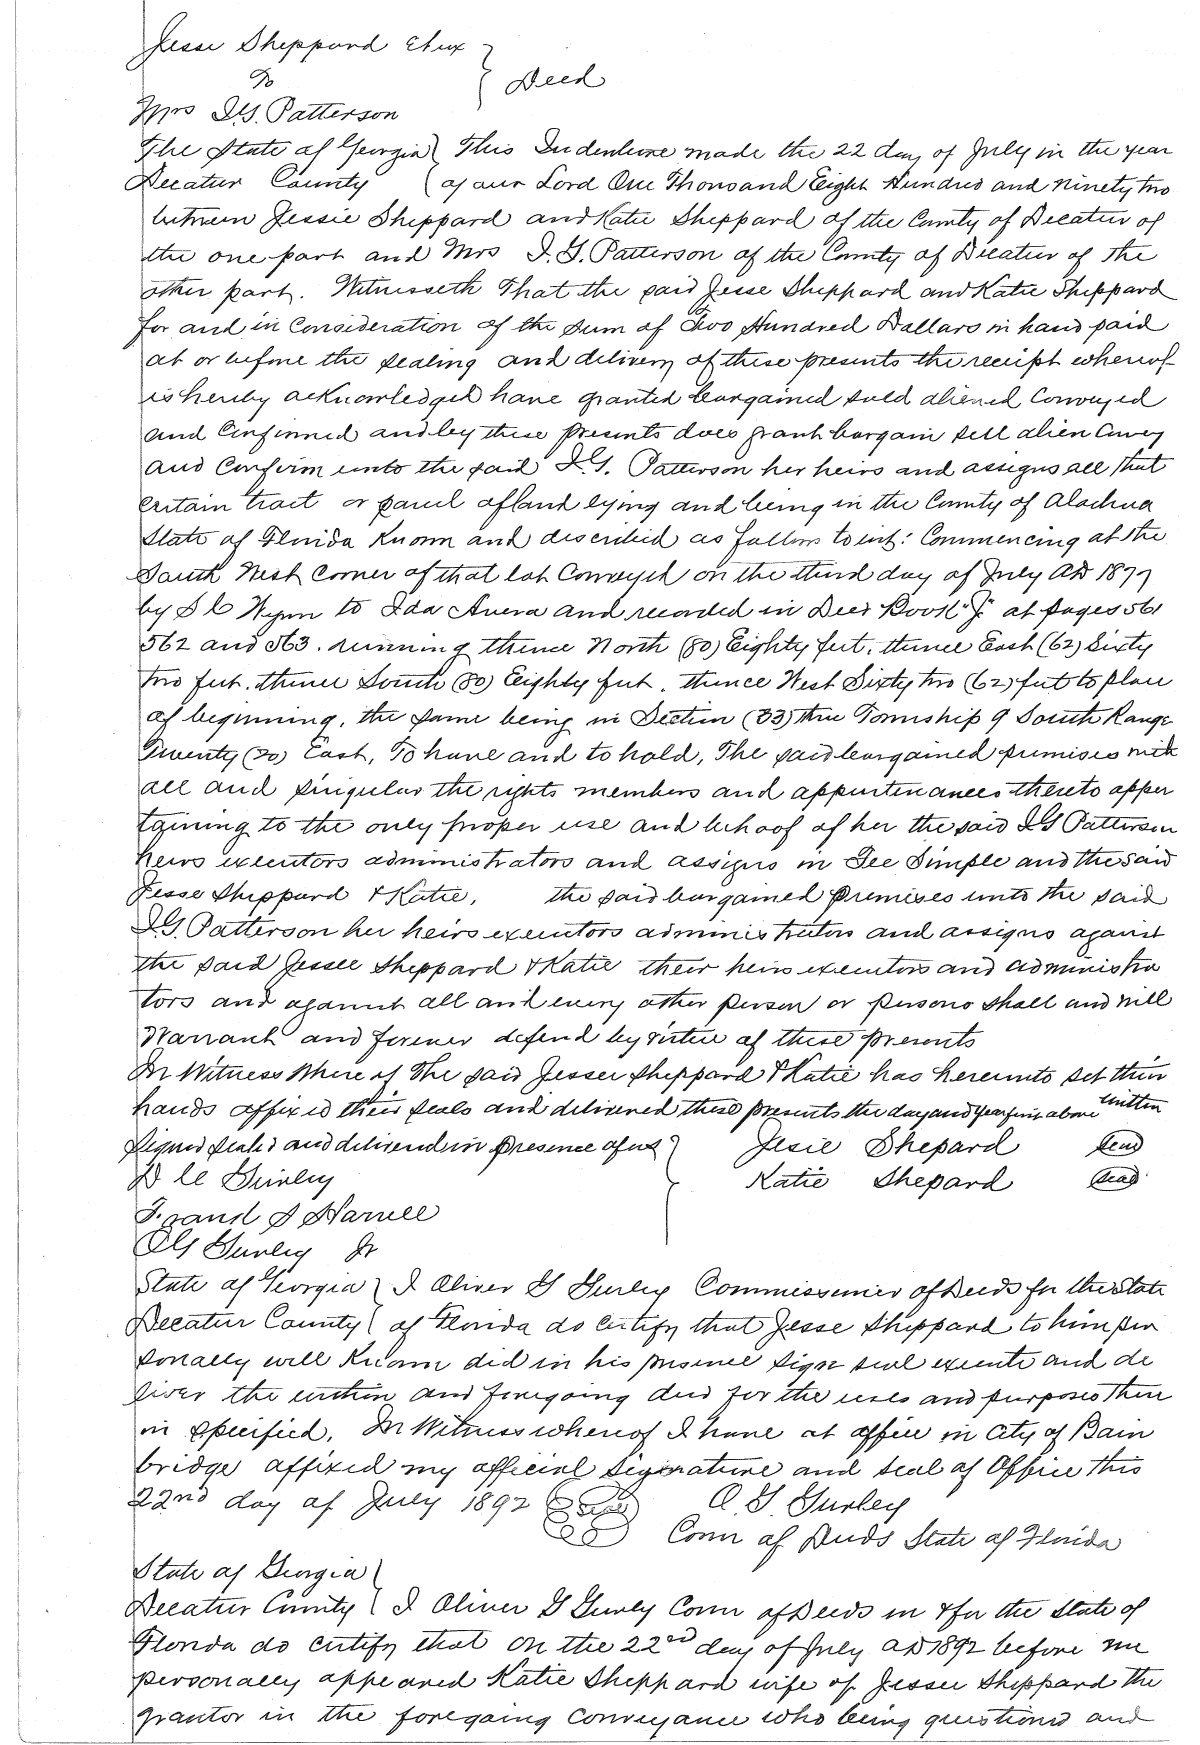 Jesse Sheppard Etux
To } Deed
Mrs I.G. Patterson
The State of Georgia } This Indenture made the 22 day of July in the year
Decatur County } of our Lord One Thousand Eight Hundred and ninety two
between Jessie Sheppard and Katie Sheppard of the County of Decatur of
the one part and Mrs I. G. Patterson of the County of Decatur of the
other part. Witnesseth That the said Jesse Sheppard and Katie Sheppard
for and in Consideration of the sum of Two Hundred Dollars in hand paid
at or before the sealing and delivery of these presents the receipt whereof
is hereby acknowledged have granted bargained sold aliened Conveyed
and Confirmed and by these presents does grant bargain sell alien Convey
and Confirm unto the said I.G. Patterson her heirs and assigns all that
certain tract or parcel of land lying and being in the County of Alachua
State of Florida Known and described as follows to wit: Commencing at the
South West Corner of that lot Conveyed on the third day of July AD 1877
by S C Wynn to Ida Avera and recorded in Deed Book "J" at pages 561
562 and 563. running thence North (80) Eighty feet, thence East (62) Sixty
two feet. thence South (80) Eighty feet. thence West Sixty two (62) feet to place
of beginning, the same being in Section (33) three Township 9 South Range
Twenty (20) East, To have and to hold, The said bargained premises with
all and singular the rights members and appurtenances thereto apper
taining to the only proper use and behoof of her the said I G Patterson
heirs executors administrators and assigns in Fee Simple and the said
Jesse Sheppard & Katie, the said bargained premises unto the said
I.G. Patterson her heirs executors administrators and assigns against
the said Jessee Sheppard & Katie their heirs executors and administra
tors and against all and every other person or persons shall and will
Warrant and forever defend by virtue of these presents
In Witness Where of The said Jesser Sheppard & Katie has hereunto set their
hands affixed their seals and delivered these presents the day and year first above written
Signed sealed and delivered in presence of us } Jesie Shepard Seal
Katie Shepard Seal
Harrell
O G Gurley Jr
State of Georgia } I Oliver G Gurley Commissioner of Deeds for the State
Decatur County } of Florida do certify that Jesse Sheppard to him per
sonally well Known did in his presence sign seal execute and de
liver the within and foregoing deed for the uses and purposes there
in specified. In Witness whereof I have at office in City of Bain
bridge affixed my official Signature and seal of Office this
22nd day of July 1892 Seal O. G. Gurley
Com of Deeds State of Florida
State of Georgia }
Decatur County } I Oliver G Gurley Com of Deeds in & for the State of
Florida do certify that on the 22nd day of July AD 1892 before me
personally appeared Katie Sheppard wife of Jessee Sheppard the
grantor in the foregoing Conveyance who being questioned and